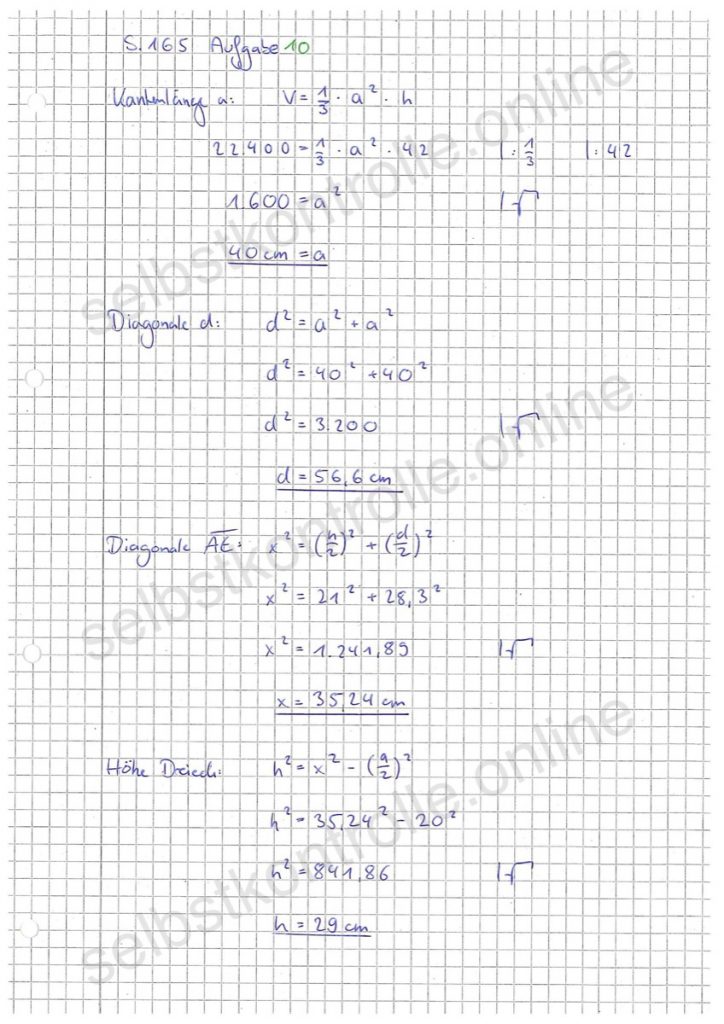 S. 165 Aufgabe 10
Kantenlänge a: V = 1/3 · a² · h
22.400 = 1/3 · a² · 42 | : 1/3 | : 42
1.600 = a² | √
40 cm = a
Diagonale d: d² = a² + a²
d² = 40² + 40²
d² = 3.200 | √
d = 56,6 cm
Diagonale A̅E̅: x² = (h/2)² + (d/2)²
x² = 21² + 28,3²
x² = 1.241,89 | √
x = 35,24 cm
Höhe Dreieck: h² = x² - (a/2)²
h² = 35,24² - 20²
h² = 841,86 | √
h = 29 cm
selbstkontrolle.online
selbstkontrolle.online
selbstkontrolle.online